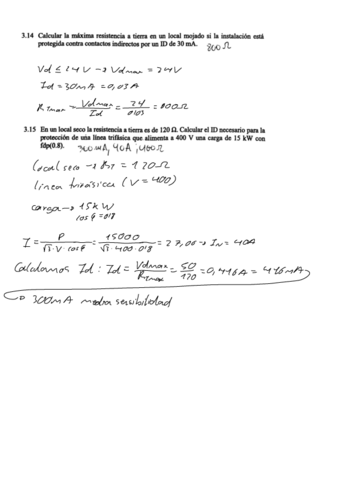 3.14 Calcular la máxima resistencia a tierra en un local mojado si la instalación está
protegida contra contactos indirectos por un ID de 30 mA. 800Ω
Vd ≤ 24V → Vdmax = 24V
Id = 30mA = 0,03A
RTmax = Vdmax/Id = 24/0,03 = 800Ω
3.15 En un local seco la resistencia a tierra es de 120 Ω. Calcular el ID necesario para la
protección de una línea trifásica que alimenta a 400 V una carga de 15 kW con
fdp(0.8). 300mA, 40A, 400Ω
Local seco → RT = 120Ω
línea trifásica (V = 400)
carga → 15kW
cos φ = 0,8
I = P/√3·V·cosφ = 15000/√3·400·0,8 = 27,06 → IN = 40A
Calculamos Id: Id = Vdmax/RTmax = 50/120 = 0,416A = 416mA
→ 300mA media sensibilidad